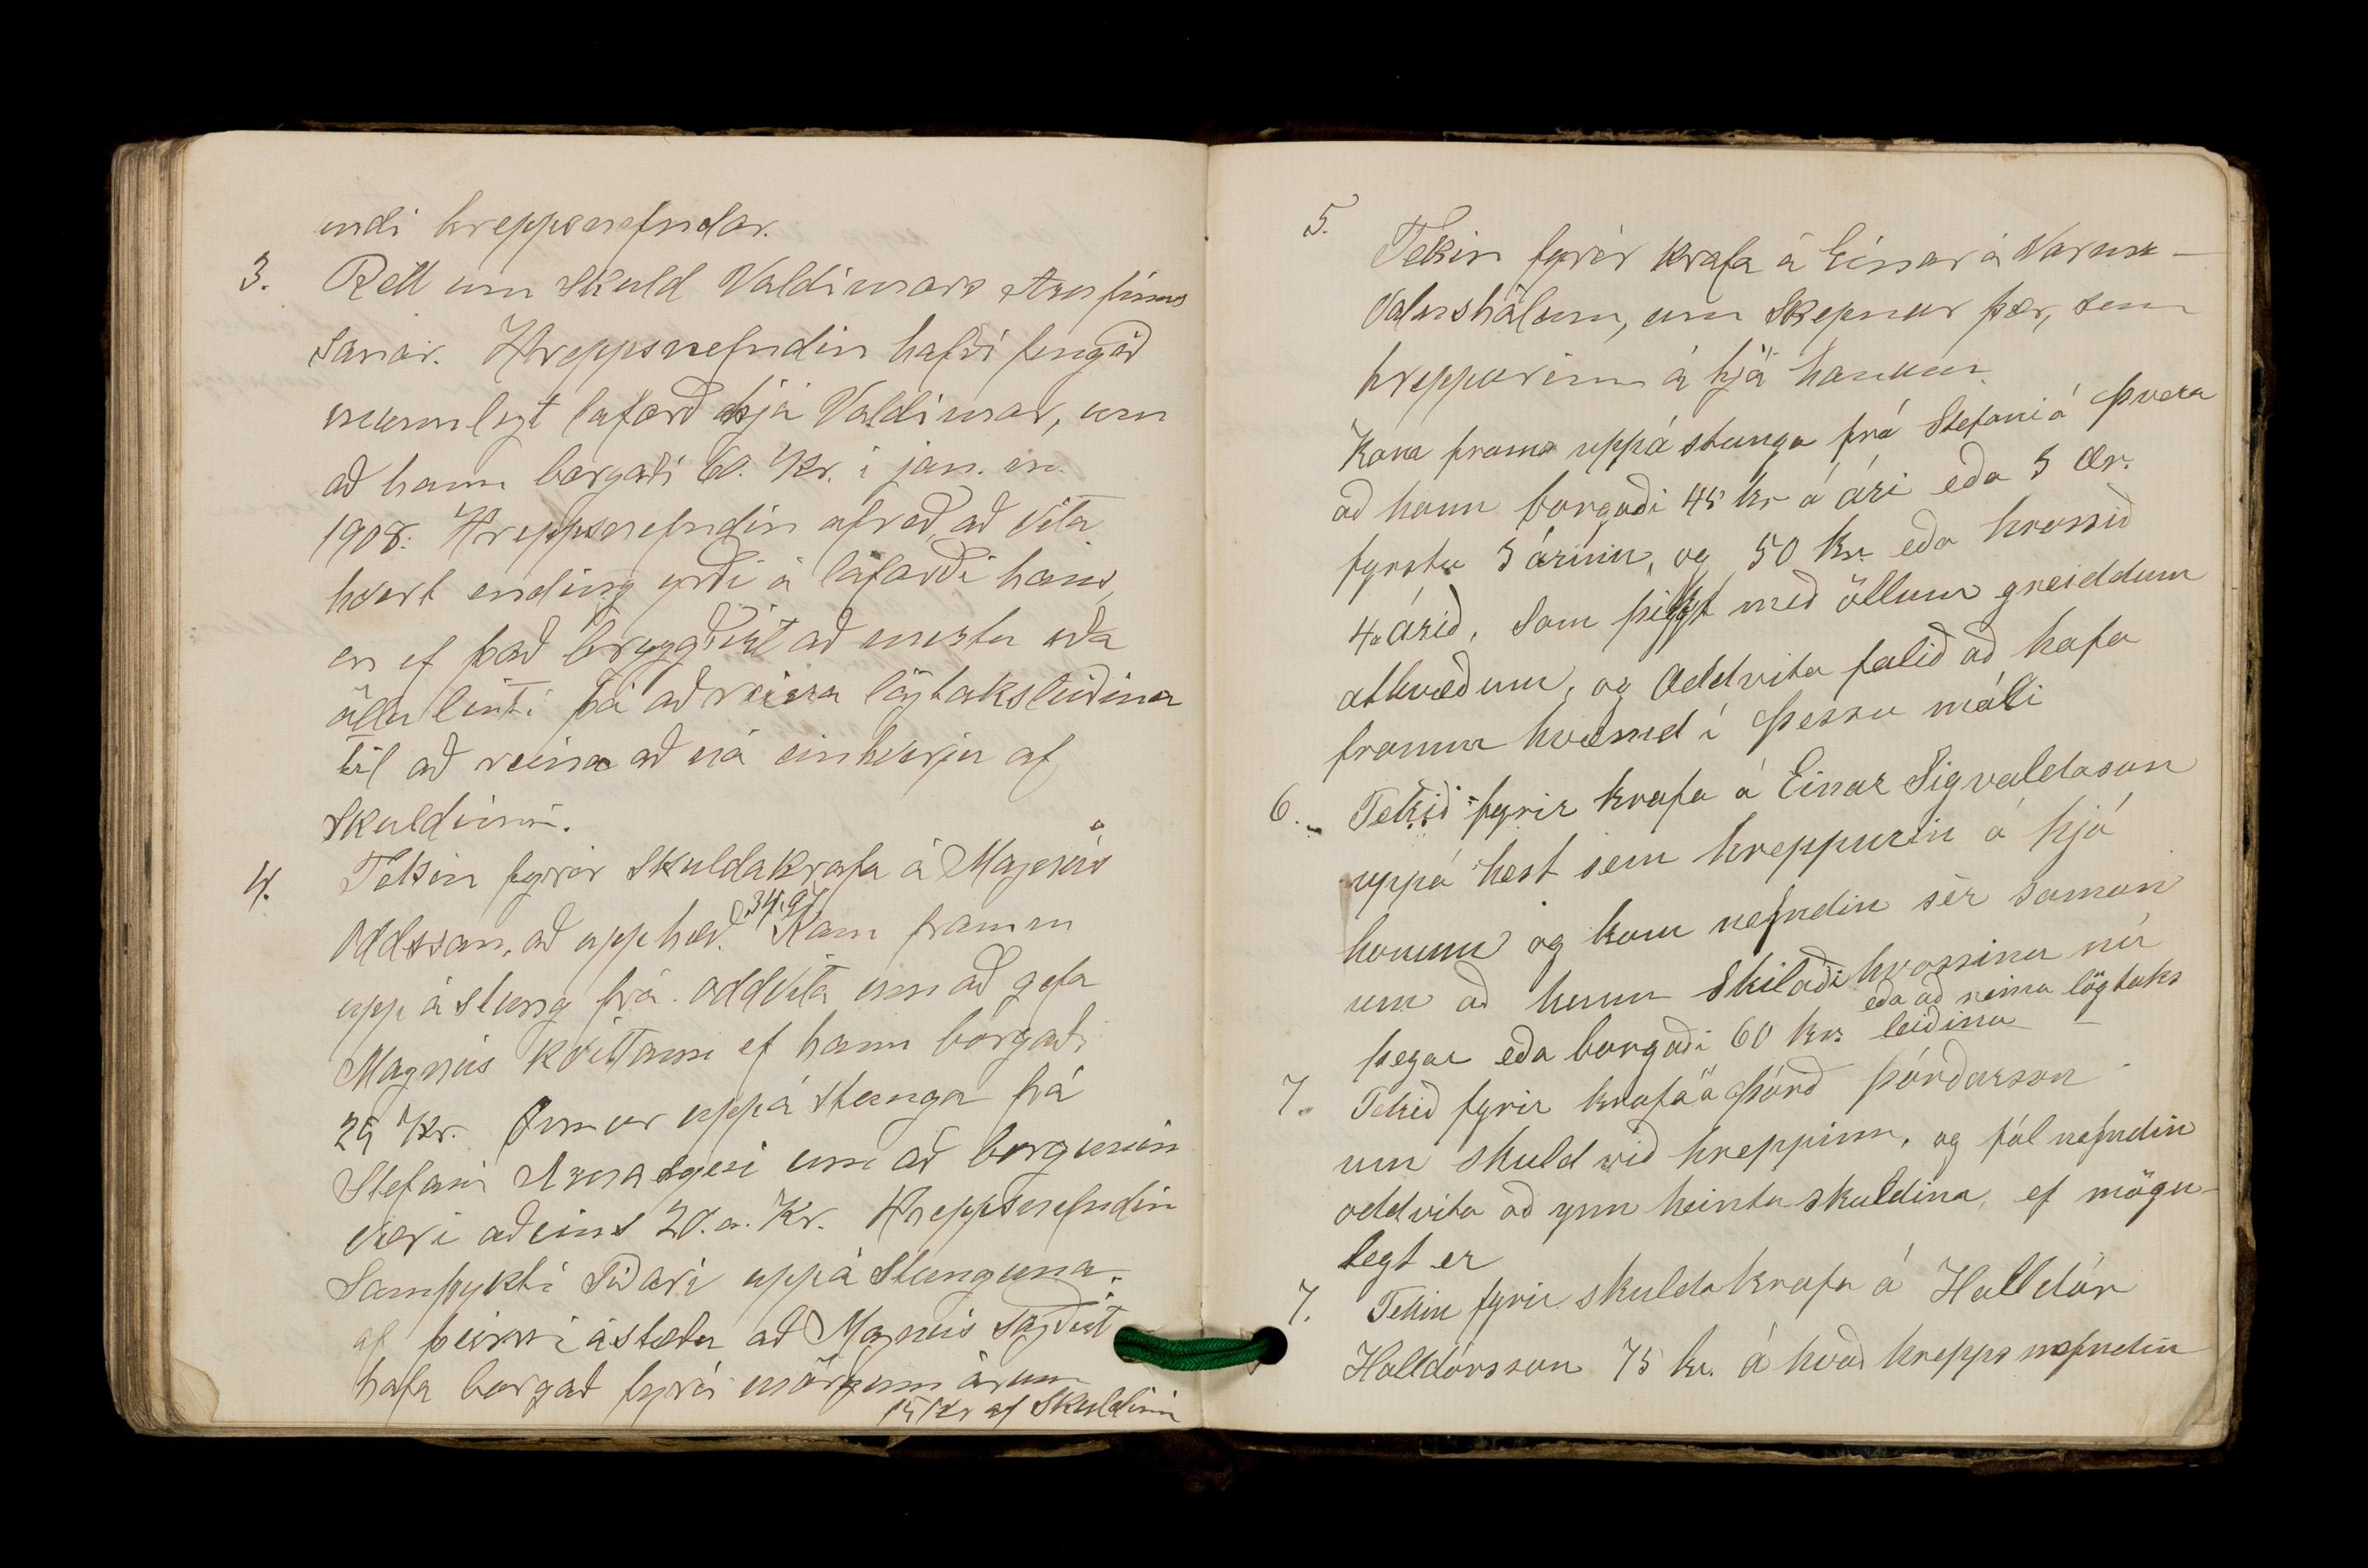 endi hreppsnefndar.
3. Rætt um skuld Valdimars Arnfinns
sonar. Hreppsnefndin hafði fengið
munnlegt loforð hjá Valdimar, um
að hann borgaði 60. Kr. í jan. m.
1908. Hreppsnefndin afréð, að vita
hvort ending yrði á loforði hans,
en ef það brygðist að mestu eða
öllu leiti þá að reina lögtaksleiðina
til að reina að ná einhverju af
skuldinni.
4. Tekin fyrir skuldakrafa á Magnús
Oddsson, að upphæð 34,97 Kom framm
uppástung frá oddvita um að gefa
Magnús kvittann ef hann borgaði
25 Kr. Önnur uppá stunga frá
Stefáni um að borgunin
væri aðeins 20.a. Kr. Hreppsnefndin
Samþykti Síðari uppá stunguna.
af þeirri ástæðu að Magnús sagðist
hafa borgað fyrir mörgum árum
15 Kr af skuldinni
5. Tekin fyrir krafa á Einar á
um skepnur þær, sem
hreppurinn á hjá honum.
Kom fram uppástunga frá Stefáni á Þvera
að hann borgaði 45 kr á ári eða 3 ær.
fyrstu 3 árinn, og 50 kr. eða hrossið
4. árið, Som þikt með öllum greiddum
atkvæðum, og Oddvita falið að hafa
framm kvæmd í þessu máli
6. Tekið fyrir krafa á Einar Sigvaldason
uppá hest sem hreppurin á hjá
honum og kom nefndin sér saman
um að hann skilaði hrossinu nú
þegar eða borgaði 60 kr. eða að reina lögtaks
leiðina
7. Tekið fyrir krafa á Þórð Þórðarson
um skuld við hreppinn, og fól nefndin
oddvita að ynn heimta skuldina, ef mögu-
legt er
7. Tekin fyrir skuldakrafa á Halldór
Halldórsson 75 kr. á hvað hreppsnefndin